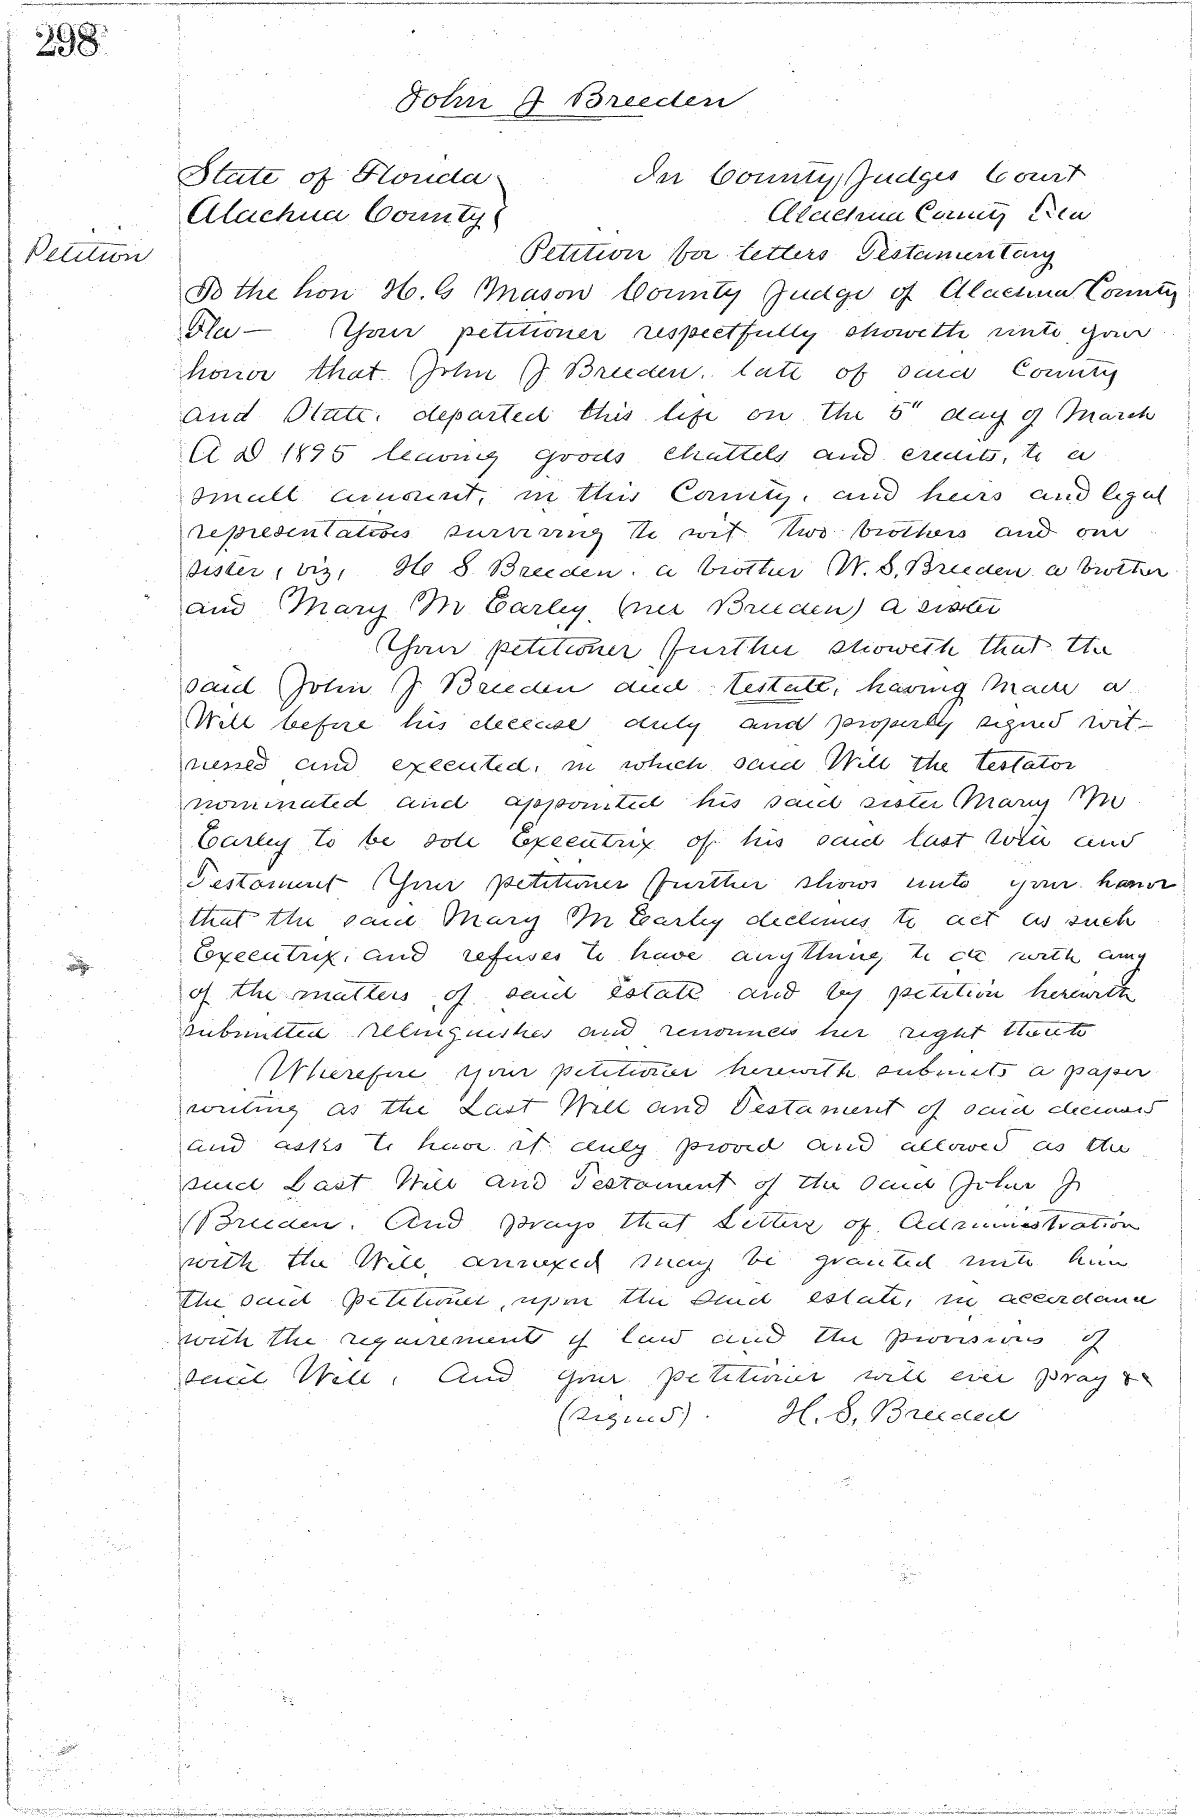 298
John J Breeden
State of Florida
Alachua County
In County Judges Court
Alachua County Fla
Petition
Petition for letters Testamentary
To the hon H. G Mason County Judge of Alachua County
Fla — Your petitioner respectfully showeth unto your
honor that John J Breeden. late of said County
and State. departed this life on the 5" day of March
A D 1895 leaving goods chattels and credits, to a
small amount, in this County, and heirs and legal
representatives surviving to wit two brothers and one
sister, viz, H S Breeden. a brother W. S. Breeden a brother
and Mary M Earley (nee Breeden) a sister
Your petitioner further showeth that the
said John J Breeden died testate, having made a
Will before his decease duly and properly signed wit-
nessed and executed, in which said Will the testator
nominated and appointed his said sister Mary M
Earley to be sole Executrix of his said last will and
Testament Your petitioner further shows unto your honor
that the said Mary M Earley declines to act as such
Executrix, and refuses to have anything to do with any
of the matters of said estate and by petition herewith
submitted relinquishes and renounces her right thereto
Wherefore your petitioner herewith submits a paper
writing as the Last Will and Testament of said deceased
and asks to have it duly proved and allowed as the
said Last Will and Testament of the said John J
Breeden. And prays that Letters of Administration
with the Will annexed may be granted unto him
the said petitioner, upon the said estate, in accordance
with the requirements of law and the provisions of
said Will, And your petitioner will ever pray &c
(signed). H. S. Breeden